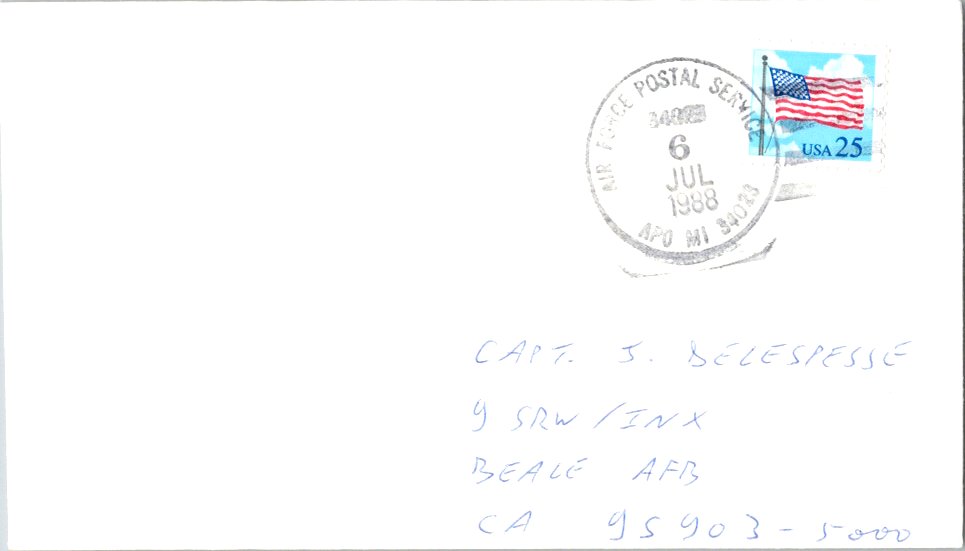 AIR FORCE POSTAL SERVICE
34023
6
JUL
1988
APO MI 34023
USA 25
CAPT. J. DELESPESSE
9 SRW/INX
BEALE AFB
CA 95903-5000